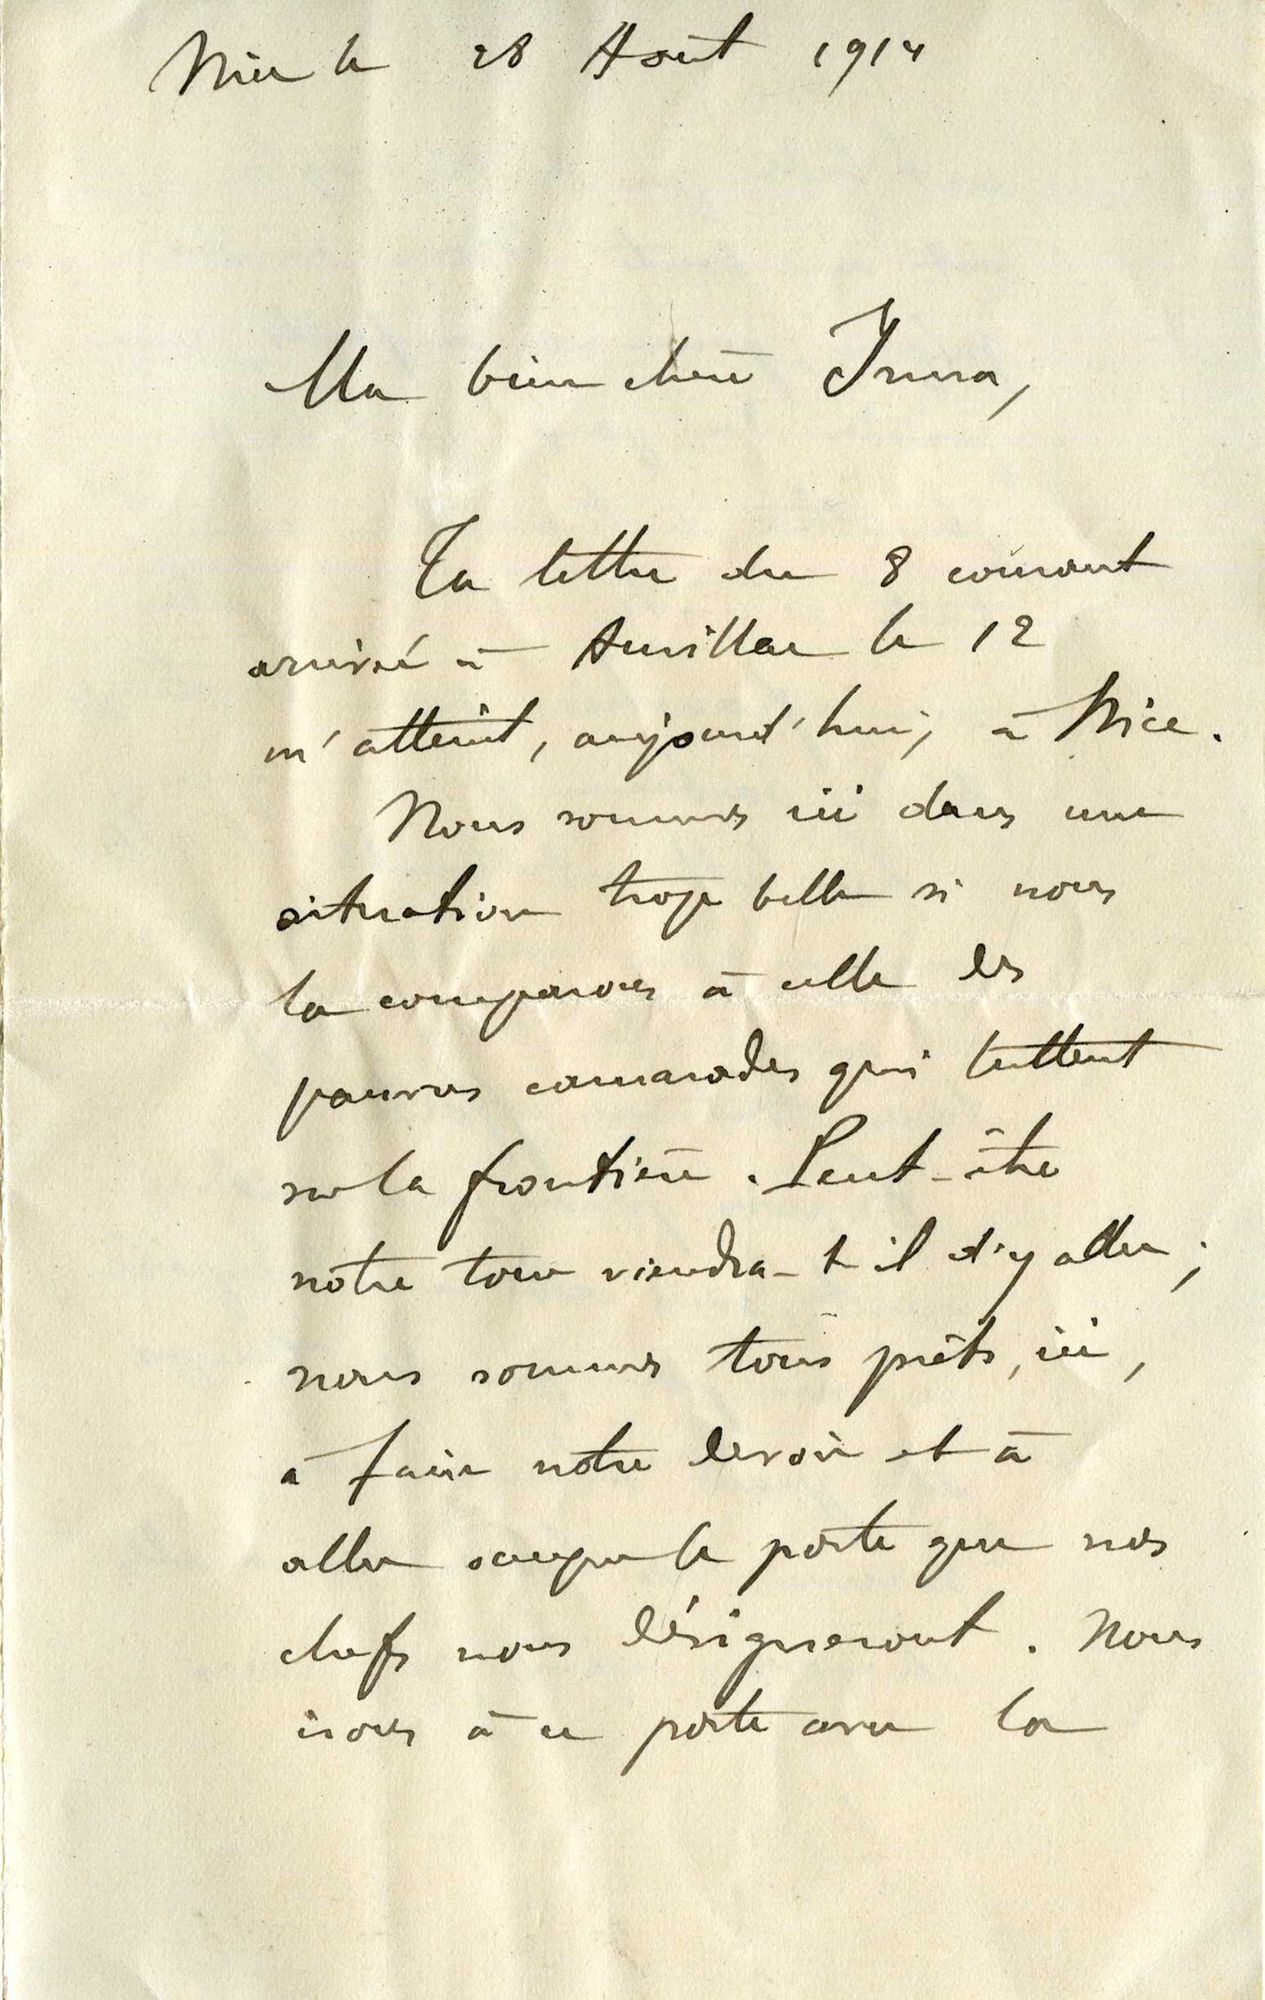 Nice le 28 Août 1914
Ma bien chère Irma,
Ta lettre du 8 courant
arrivée à Auvillar le 12
m'atteint, aujourd'hui, à Nice.
Nous sommes ici dans une
situation trop belle si nous
la comparons à celle des
pauvres camarades qui luttent
sur la frontière. Peut-être
notre tour viendra-t-il d'y aller ;
nous sommes tous prêts, ici,
à faire notre devoir et à
aller occuper le poste que nos
chefs nous désigneront. Nous
irons à ce poste avec la